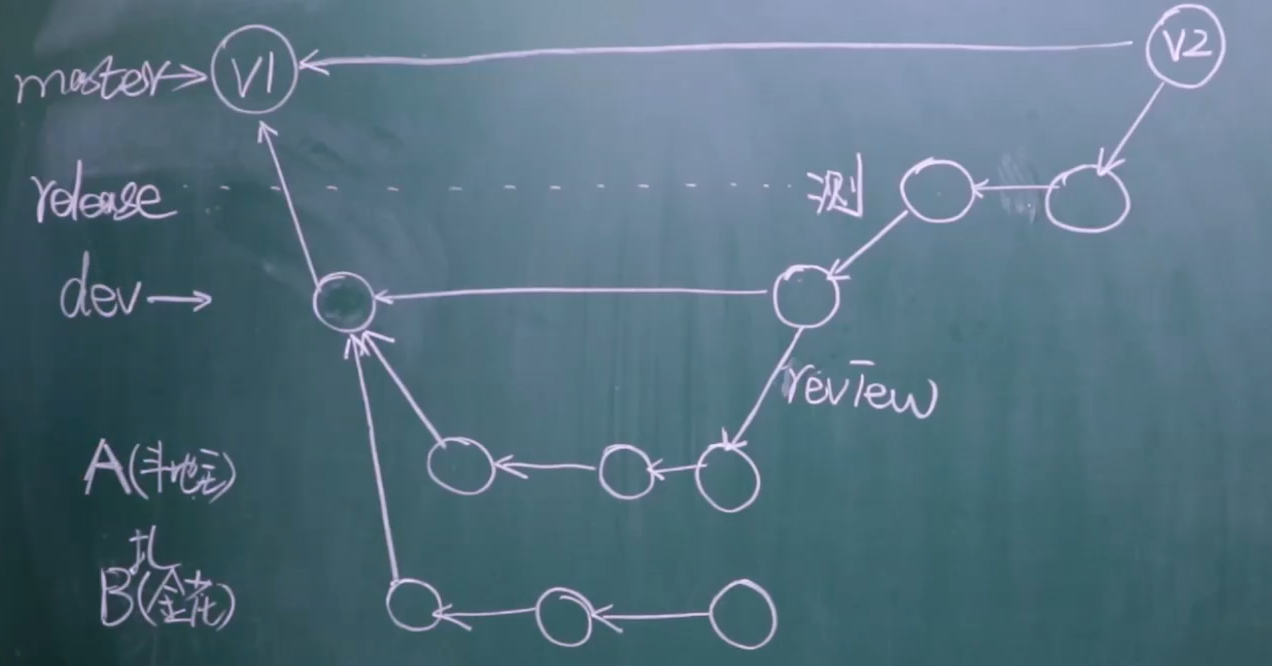 master V1 V2
release 测
dev
review
A(斗地主)
扎
B(金花)